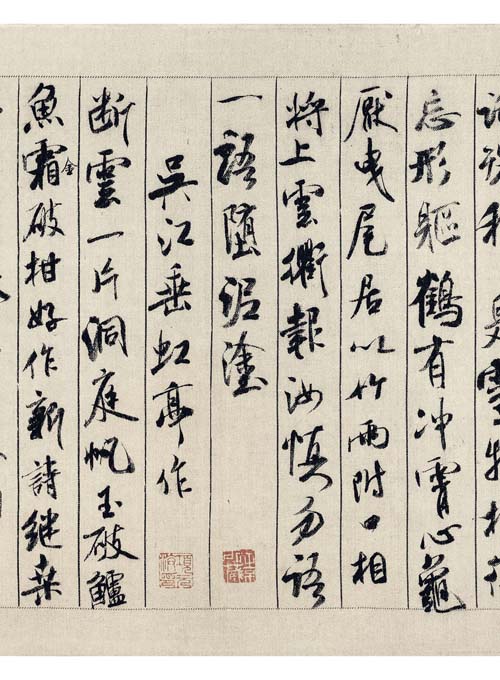 是靈物相得
忘形軀鶴有沖霄心龜
厭曳尾居以竹兩附口相
將上雲衢報汝慎勿語
一語墮泥塗
吳江垂虹亭作
断雲一片洞庭帆玉破鱸
魚霜金破柑好作新詩継桑